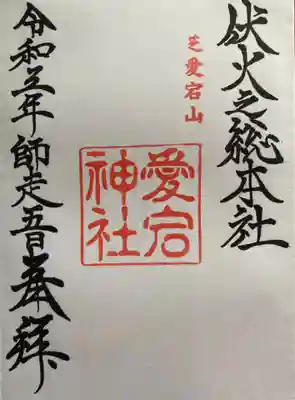 伏火之総本社
芝愛宕山
愛宕
神社
令和三年師走五日奉拝